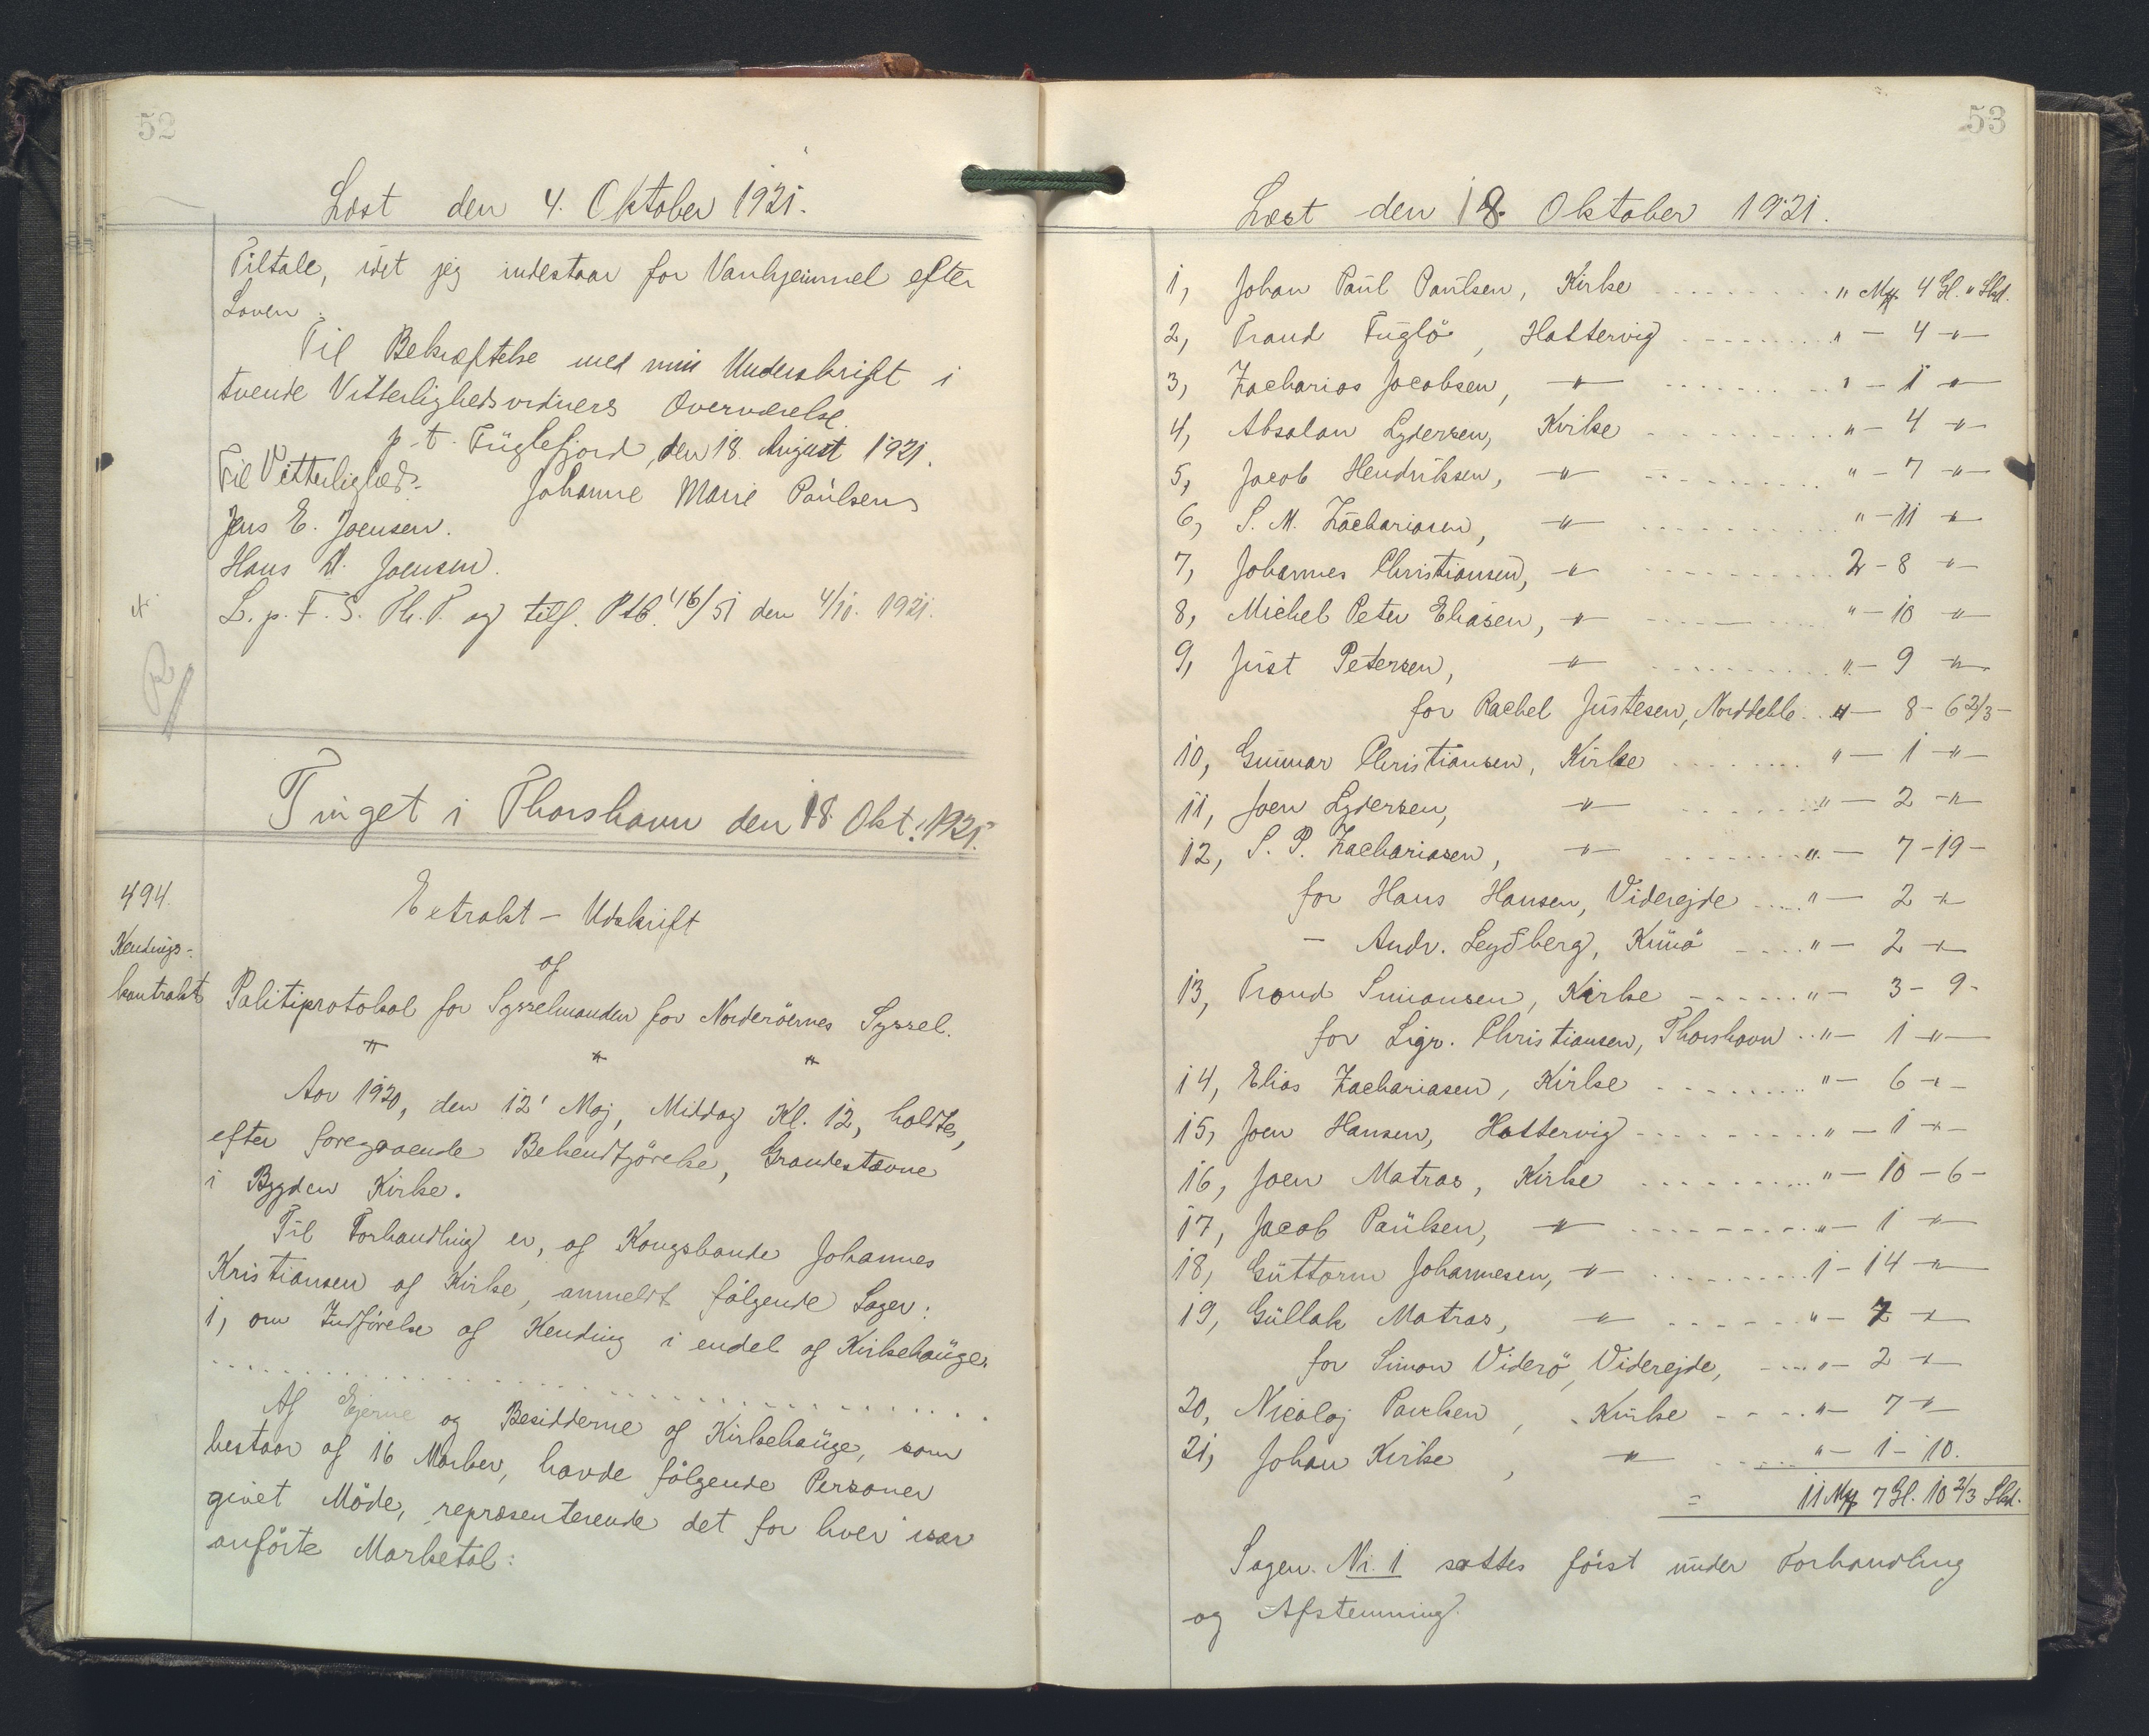 52
Læst den 4. Oktober 1921.
Tiltale, idet jeg indestaar for Vanhjemmel efter
Loven.
Til Bekræftelse med min Underskrift i
tvende Vitterlighedsvidners Overværelse.
p. t. Fuglefjord, den 18. August 1921.
Til Vitterlighed: Johanne Marie Paulsen
Jens E. Joensen.
Hans D. Joensen.
L. p. F. S. Th. T. og tilf. Ptb. 46/51 den 4/10. 1921.
Tinget i Thorshavn den 18. Okt. 1921.
494.
Kendings-
kontrakt
Extrakt - Udskrift
af
Politiprotokol for Sysselmanden for Norderöernes Syssel.
Aar 1920, den 12' Maj, Middag Kl. 12, holdtes,
efter foregaaende Bekendtgörelse, Grandestævne
i Bygden Kirke.
Til Forhandling er, af Kongsbonde Johannes
Kristiansen af Kirke, anmeldt fölgende Sager:
1, om Indförelse af Kending i endel af Kirkehauge.
Af Ejerne og Besidderne af Kirkehauge, som
bestaar af 16 Marker, havde fölgende Personer
givet Möde, repræsenterende det for hver især
anförte Marketal:
53
Læst den 18. Oktober 1921.
1, Johan Paul Paulsen, Kirke . . . . . . . . " Mk 4 Gl. " Skd.
2, Trand Fuglö, Hattervig . . . . . . . . " - 4 - " -
3, Zacharias Jacobsen, - " - . . . . . . . . " - 1 - " -
4, Absalon Lydersen, Kirke . . . . . . . . " - 4 - " -
5, Jacob Hendriksen, - " - . . . . . . . . " - 7 - " -
6, S. M. Zachariasen, - " - . . . . . . . . " - 11 - " -
7, Johannes Christiansen, - " - . . . . . . . . 2 - 8 - " -
8, Michel Peter Eliasen, - " - . . . . . . . . " - 10 - " -
9, Just Petersen, - " - . . . . . . . . " - 9 - " -
for Rachel Justesen, Norddeble . . " - 8 - 6 2/3 -
10, Gunnar Christiansen, Kirke . . . . . . . . " - 1 - " -
11, Joen Lydersen, - " - . . . . . . " - 2 - " -
12, S. P. Zachariasen, - " - . . . . . . . . " - 7 - 19 -
for Hans Hansen, Viderejde . . . . " - 2 - " -
- Andr. Leydberg, Kunö . . . . " - 2 - " -
13, Trond Simonsen, Kirke . . . . . . " - 3 - 9 -
for Sigr. Christiansen, Thorshavn . . " - 1 - " -
14, Elias Zachariasen, Kirke . . . . . . . . " - 6 - " -
15, Joen Hansen, Hattervig . . . . . . . . " - 1 - " -
16, Joen Matras, Kirke . . . . . . . . " - 10 - 6 -
17, Jacob Paulsen, - " - . . . . . . . . " - 1 - " -
18, Guttorm Johannesen, - " - . . . . . . . . 1 - 14 - " -
19, Gullak Matras, - " - . . . . . . " - 7 - " -
for Simon Viderö, Viderejde, . . . . " - 2 - " -
20, Nicolaj Paulsen, Kirke . . . . " - 7 - " -
21, Johan Kirke, - " - . . . . . " - 1 - 10.
= 11 Mk 7 Gl. 10 2/3 Skd.
Sagen Nr. 1 sattes först under Forhandling
og Afstemning.